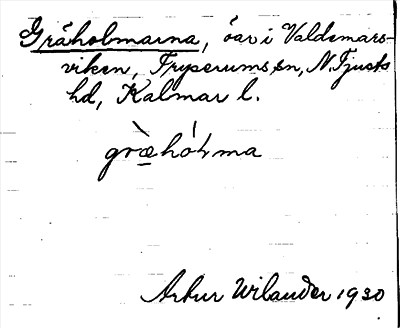 Gråholmarna, öar i Valdemars-
viken, Tryserums sn, N. Tjusts
hd, Kalmar l.
græ̀hół́ma
Artur Wilander 1930